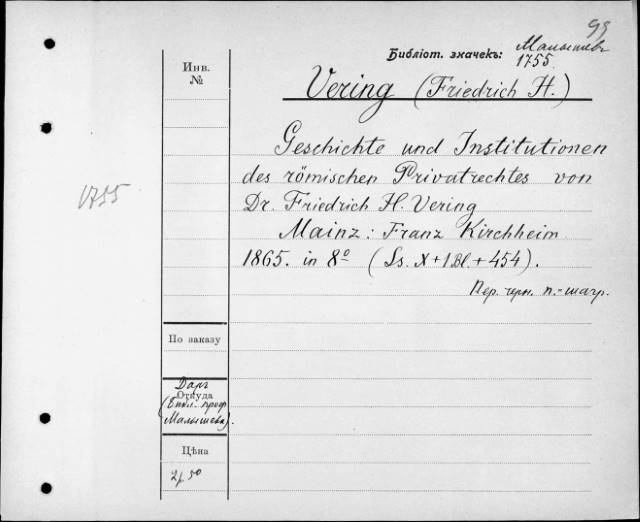 99
Библіот. значекъ: Малышевъ
1755
Инв.
№
Vering (Friedrich H.)
Geschichte und Institutionen
des römischen Privatrechtes von
Dr. Friedrich H. Vering
Mainz: Franz Kirchheim
1865. in 8º (Ss. X+1Bl.+454).
Пер. черн. п.-шагр.
1755
По заказу
Даръ
Откуда
(Библ. проф.
Малышева).
Цѣна
2р. 50